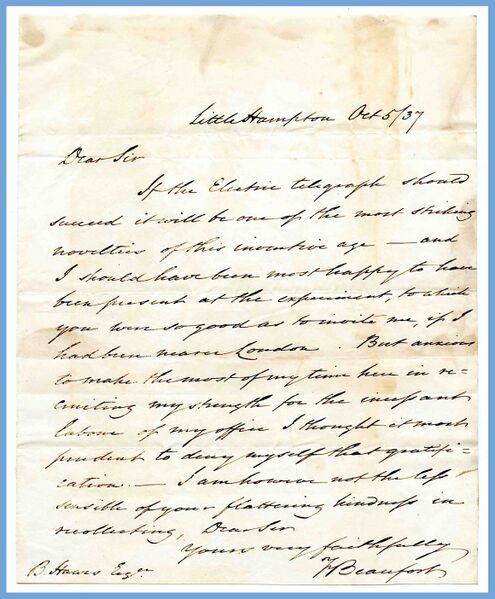 Little Hampton Oct 5/37
Dear Sir
If the Electric telegraph should
succeed it will be one of the most striking
novelties of this inventive age — and
I should have been most happy to have
been present at the experiment, to which
you were so good as to invite me, if I
had been nearer London. But anxious
to make the most of my time here in re=
cruiting my strength for the incessant
labour of my office I thought it most
prudent to deny myself that gratifi=
cation — I am however not the less
sensible of your flattering kindness in
recollecting, Dear Sir
Yours very faithfully
F Beaufort
B. Hawes Esqre